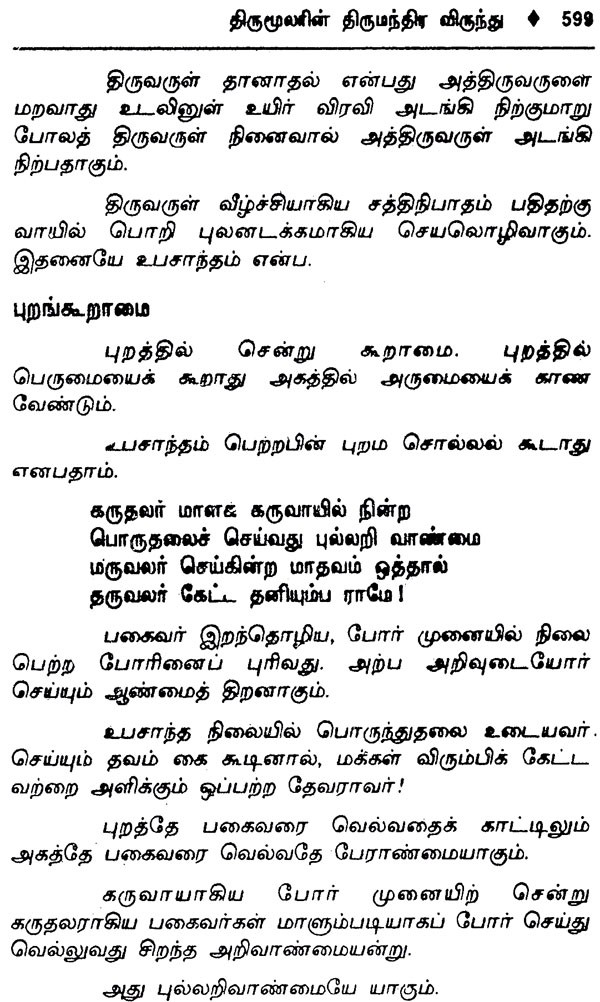 திருமூலரின் திருமந்திர விருந்து ♦ 599
திருவருள் தானாதல் என்பது அத்திருவருளை
மறவாது உடலினுள் உயிர் விரவி அடங்கி நிற்குமாறு
போலத் திருவருள் நினைவால் அத்திருவருள் அடங்கி
நிற்பதாகும்.
திருவருள் வீழ்ச்சியாகிய சத்திநிபாதம் பதிதற்கு
வாயில் பொறி புலனடக்கமாகிய செயலொழிவாகும்.
இதனையே உபசாந்தம் என்ப.
புறங்கூறாமை
புறத்தில் சென்று கூறாமை. புறத்தில்
பெருமையைக் கூறாது அகத்தில் அருமையைக் காண
வேண்டும்.
உபசாந்தம் பெற்றபின் புறம சொல்லல் கூடாது
எனபதாம்.
கருதலர் மாளக் கருவாயில் நின்ற
பொருதலைச் செய்வது புல்லறி வாண்மை
மருவலர் செய்கின்ற மாதவம் ஒத்தால்
தருவலர் கேட்ட தனியும்ப ராமே!
பகைவர் இறந்தொழிய, போர் முனையில் நிலை
பெற்ற போரினைப் புரிவது. அற்ப அறிவுடையோர்
செய்யும் ஆண்மைத் திறனாகும்.
உபசாந்த நிலையில் பொருந்துதலை உடையவர்
செய்யும் தவம் கை கூடினால், மக்கள் விரும்பிக் கேட்ட
வற்றை அளிக்கும் ஒப்பற்ற தேவராவர்!
புறத்தே பகைவரை வெல்வதைக் காட்டிலும்
அகத்தே பகைவரை வெல்வதே பேராண்மையாகும்.
கருவாயாகிய போர் முனையிற் சென்று
கருதலராகிய பகைவர்கள் மாளும்படியாகப் போர் செய்து
வெல்லுவது சிறந்த அறிவாண்மையன்று.
அது புல்லறிவாண்மையே யாகும்.